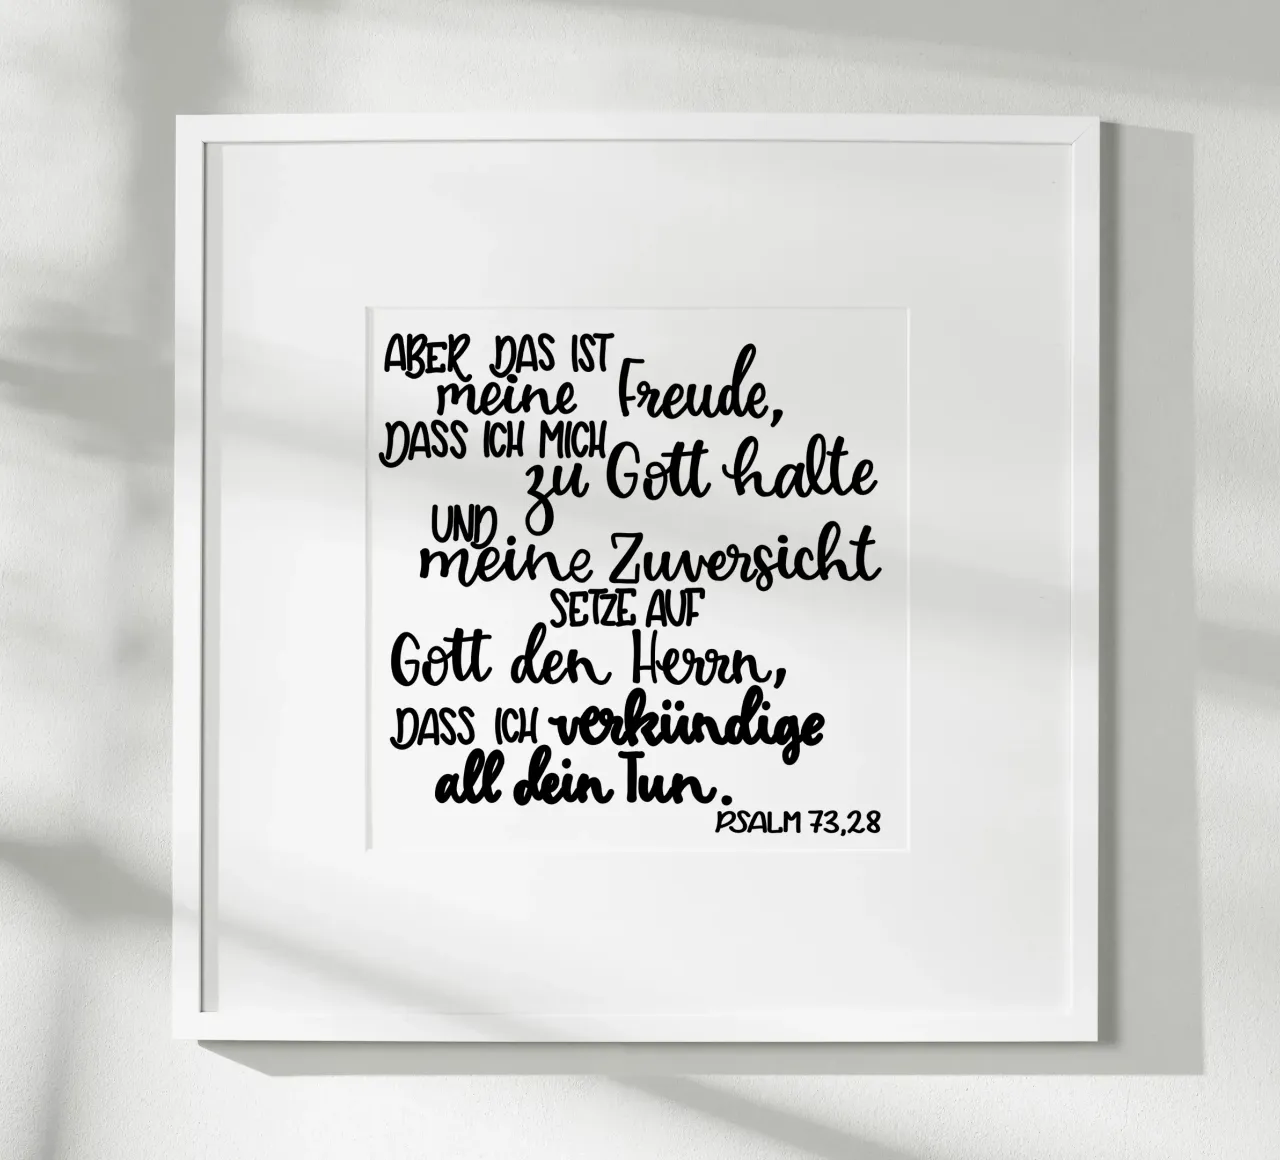 ABER DAS IST
meine Freude,
DASS ICH MICH
zu Gott halte
UND
meine Zuversicht
SETZE AUF
Gott den Herrn,
DASS ICH verkündige
all dein Tun.
PSALM 73,28